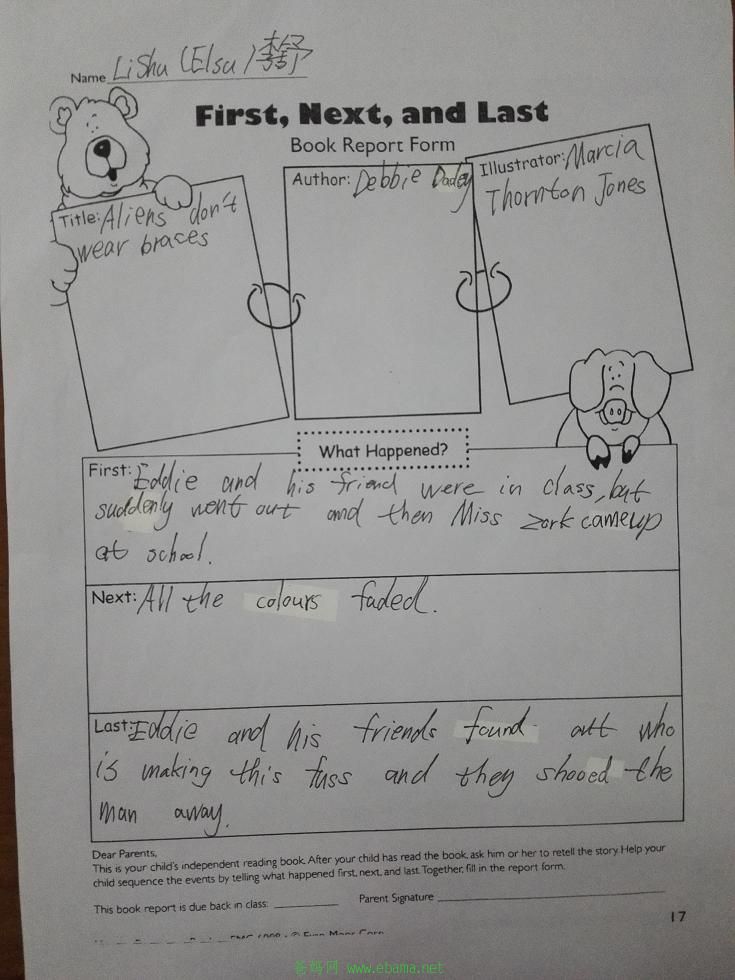 Name LiShu (Elsa)
First, Next, and Last
Book Report Form
Title: Aliens don't
wear braces
Author: Debbie Dadey
Illustrator: Marcia
Thornton Jones
What Happened?
First: Eddie and his friend were in class, but
suddenly went out and then Miss zork cameup
at school.
Next: All the colours faded.
Last: Eddie and his friends found out who
is making this fuss and they shooed the
man away.
Dear Parents,
This is your child's independent reading book. After your child has read the book, ask him or her to retell the story. Help your
child sequence the events by telling what happened first, next, and last. Together, fill in the report form.
This book report is due back in class: Parent Signature
17
爸妈网 www.ebama.net